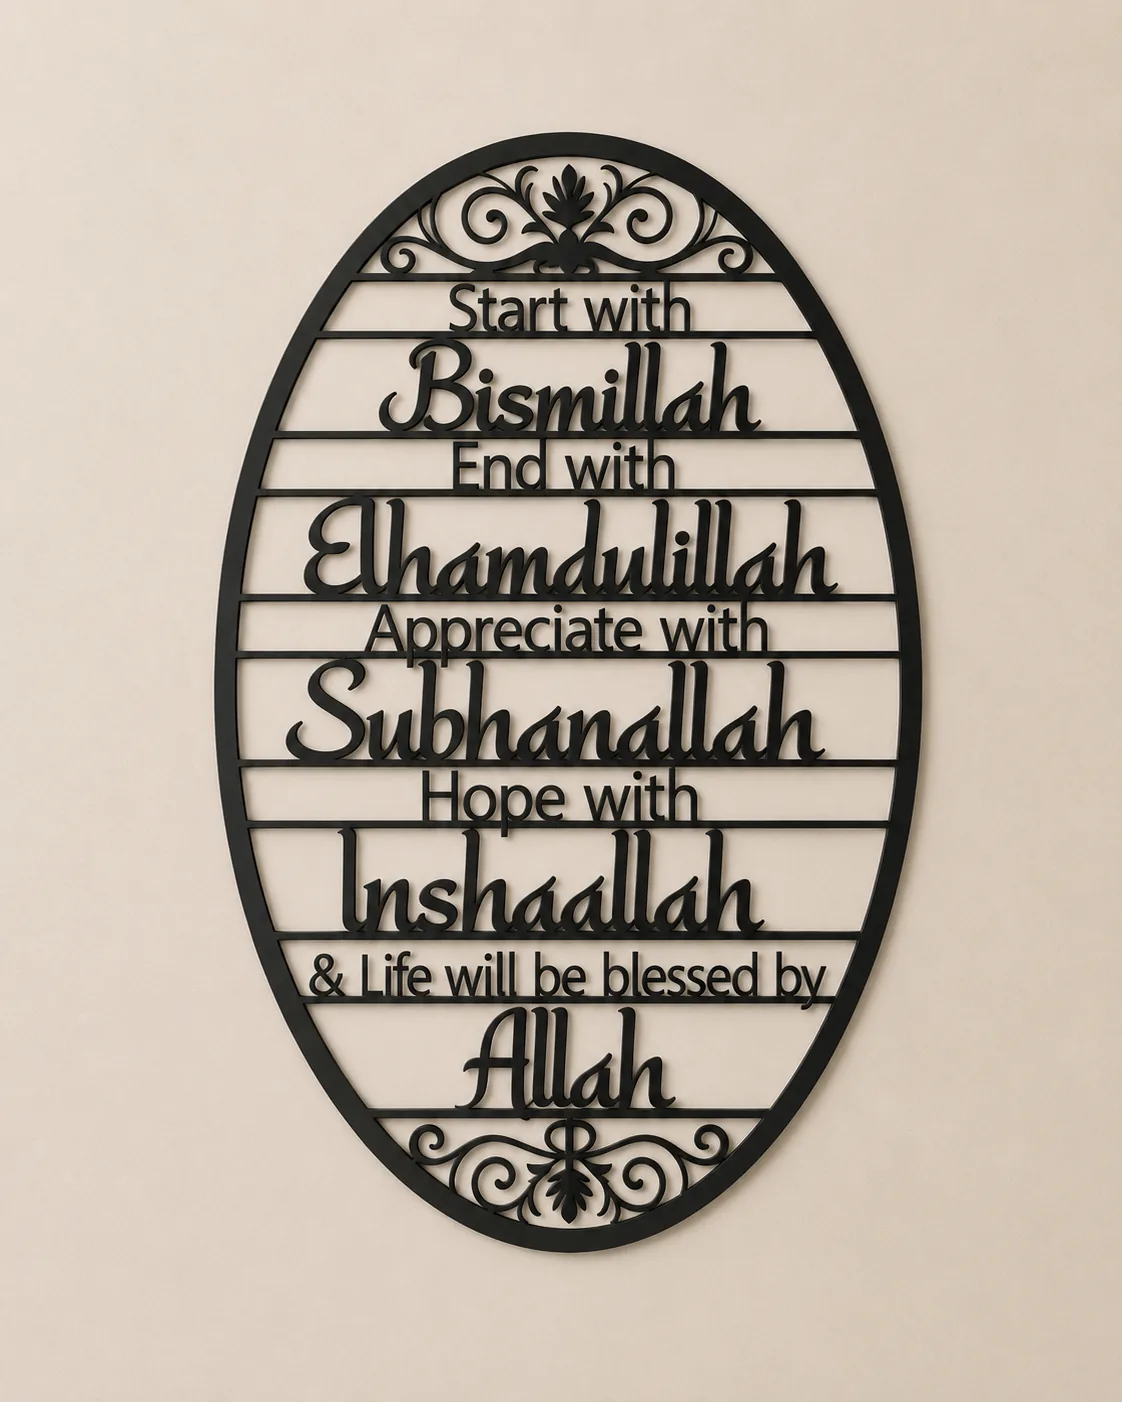 Start with
Bismillah
End with
Elhamdulillah
Appreciate with
Subhanallah
Hope with
Inshaallah
& Life will be blessed by
Allah